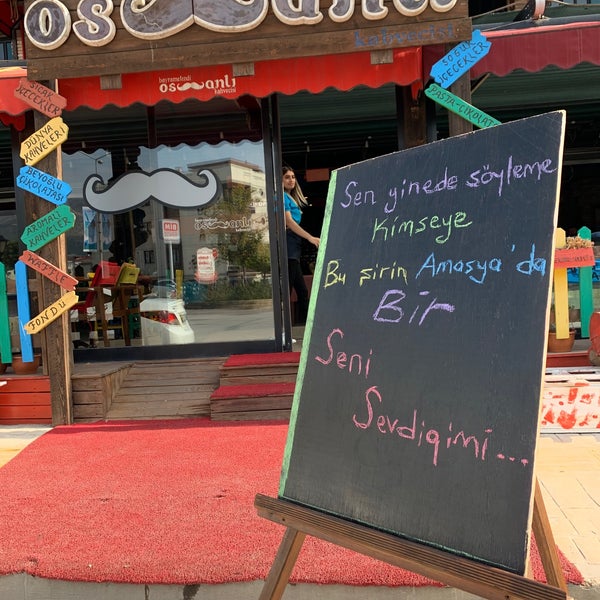 osmanlı
bayramefendi
osmanlı
kahvecisi
SICAK İÇECEKLER
DÜNYA KAHVELERİ
BEYOĞLU ÇİKOLATASI
AROMALI
WAFFLE
FONDÜ
SOĞUK İÇECEKLER
PASTA-ÇİKOLATA
osmanlı
Sen yinede söyleme
Kimseye
Bu şirin Amasya'da
Bir
Seni
Sevdiğimi...